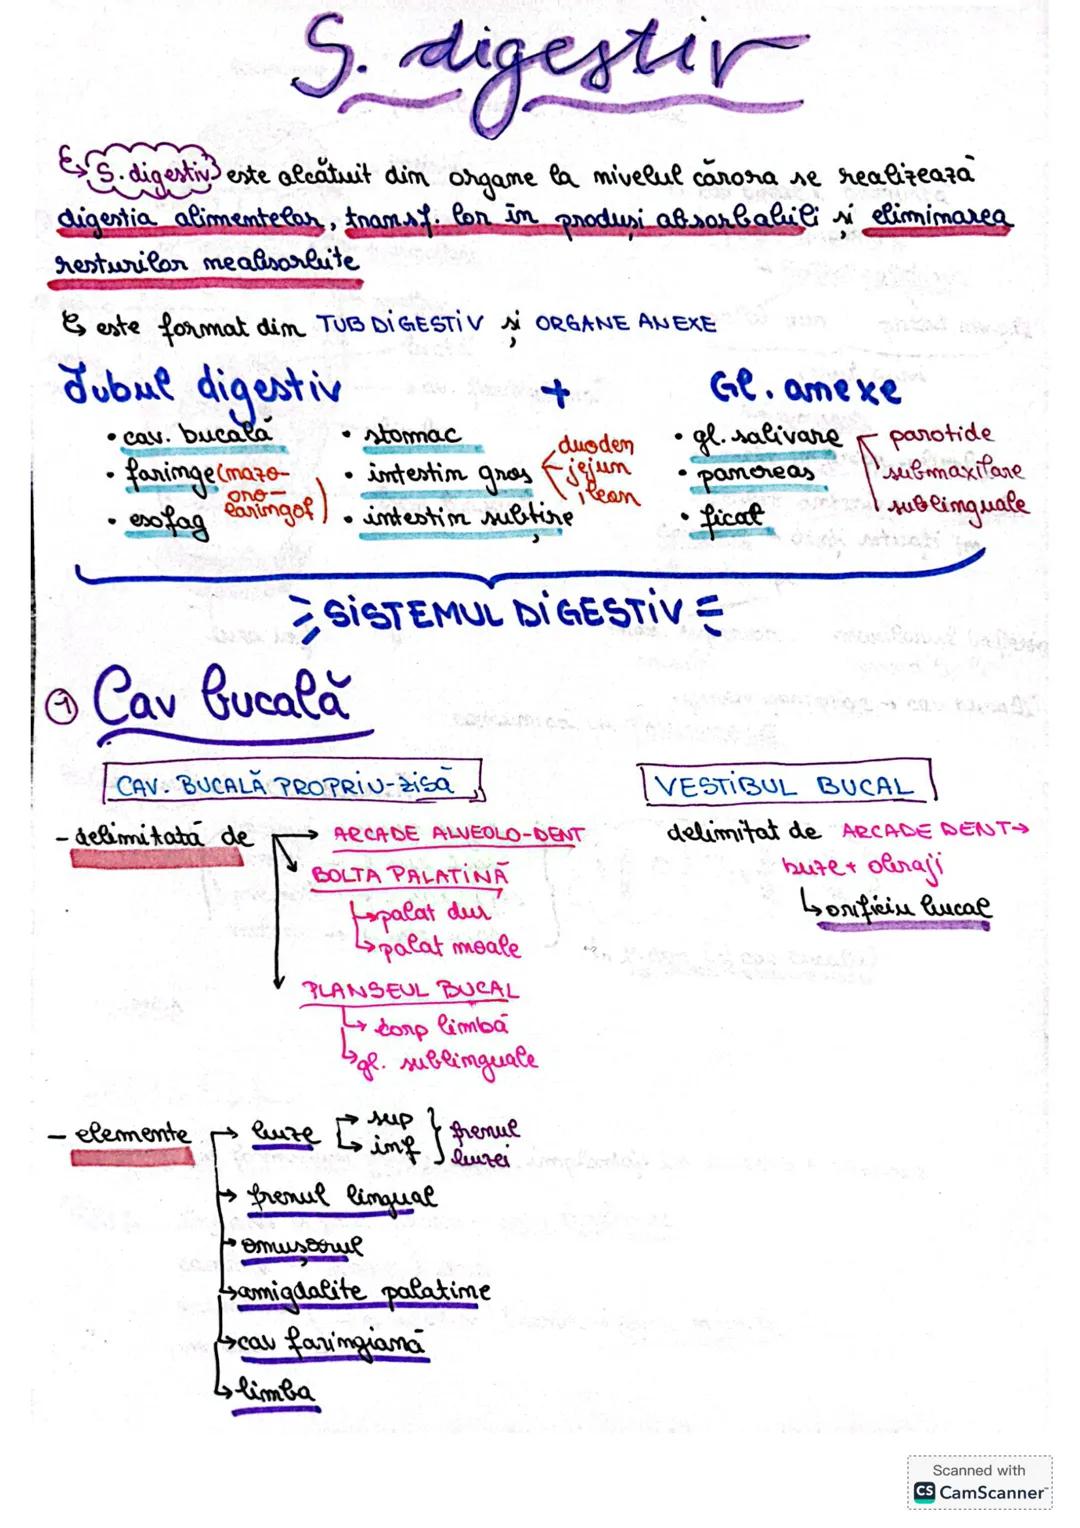 S. digestiv
S. digestiv este alcătuit din organe la nivelul cărora se realizează
digestia alimentelor, transf. lor în produși absorbabili și eliminarea
resturilor neabsorbite
este format din TUB DIGESTIV și ORGANE ANEXE
Tubul digestiv + Gl. anexe
• cav. bucală • stomac • gl. salivare parotide
• faringe (nazo- • intestin gros duoden • pancreas submaxilare
oro- jejun
• esofag laringof) • intestin subțire ilean • ficat sublinguale
SISTEMUL DIGESTIV
1 Cav bucală
CAV. BUCALĂ PROPRIU-ZISĂ VESTIBUL BUCAL
- delimitată de → ARCADE ALVEOLO-DENT delimitat de ARCADE DENT→
BOLTA PALATINĂ buze + obraji
→ palat dur ↳ orificiu bucal
→ palat moale
PLANSEUL BUCAL
→ corp limbă
→ gl. sublinguale
- elemente → buze → sup } frenul
→ inf buzei
→ frenul lingual
→ omușorul
→ amigdalite palatine
→ cav faringiană
→ limba
Scanned with
CS CamScanner